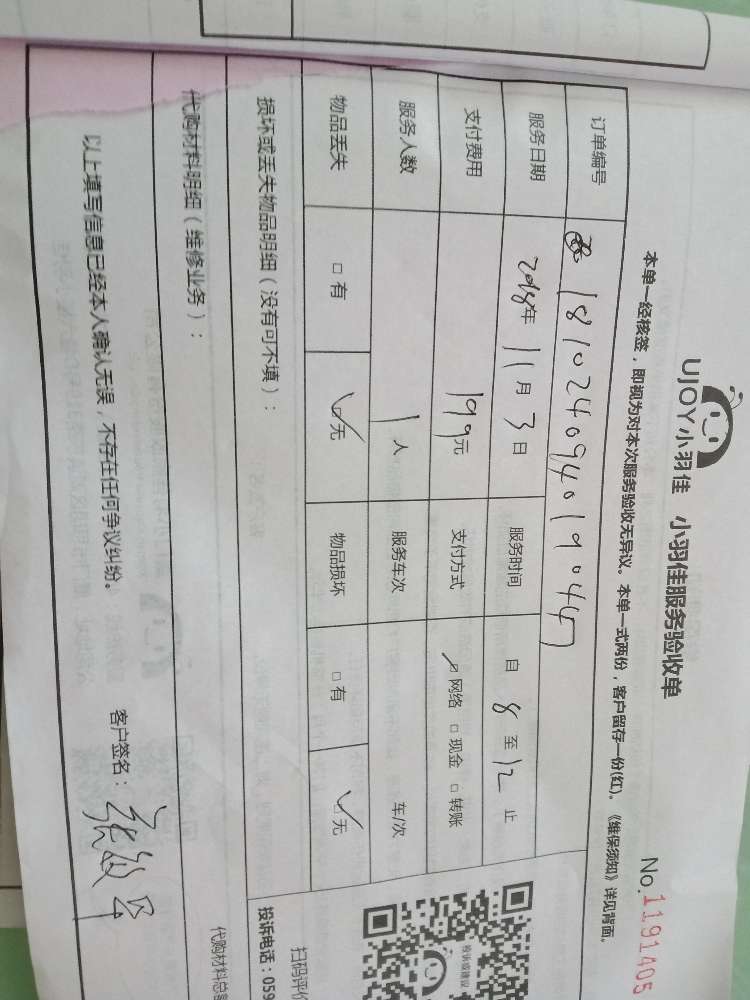 UJOY小羽佳 小羽佳服务验收单 No.1191405
本单一经核签，即视为对本次服务验收无异议。本单一式两份，客户留存一份(红)。《维保须知》详见背面。
订单编号 181024094019044
服务日期 2018年 11月 3日 服务时间 自 8 至 12 止
支付费用 199元 支付方式 网络 □ 现金 □ 转账
服务人数 1人 服务车次 车/次
物品丢失 □ 有 ☑无 物品损坏 □ 有 ☑无
损坏或丢失物品明细（没有可不填）：
投诉或建议
扫码评价
投诉电话：059
代购材料明细（维修业务）：
代购材料总
以上填写信息已经本人确认无误，不存在任何争议纠纷。 客户签名：